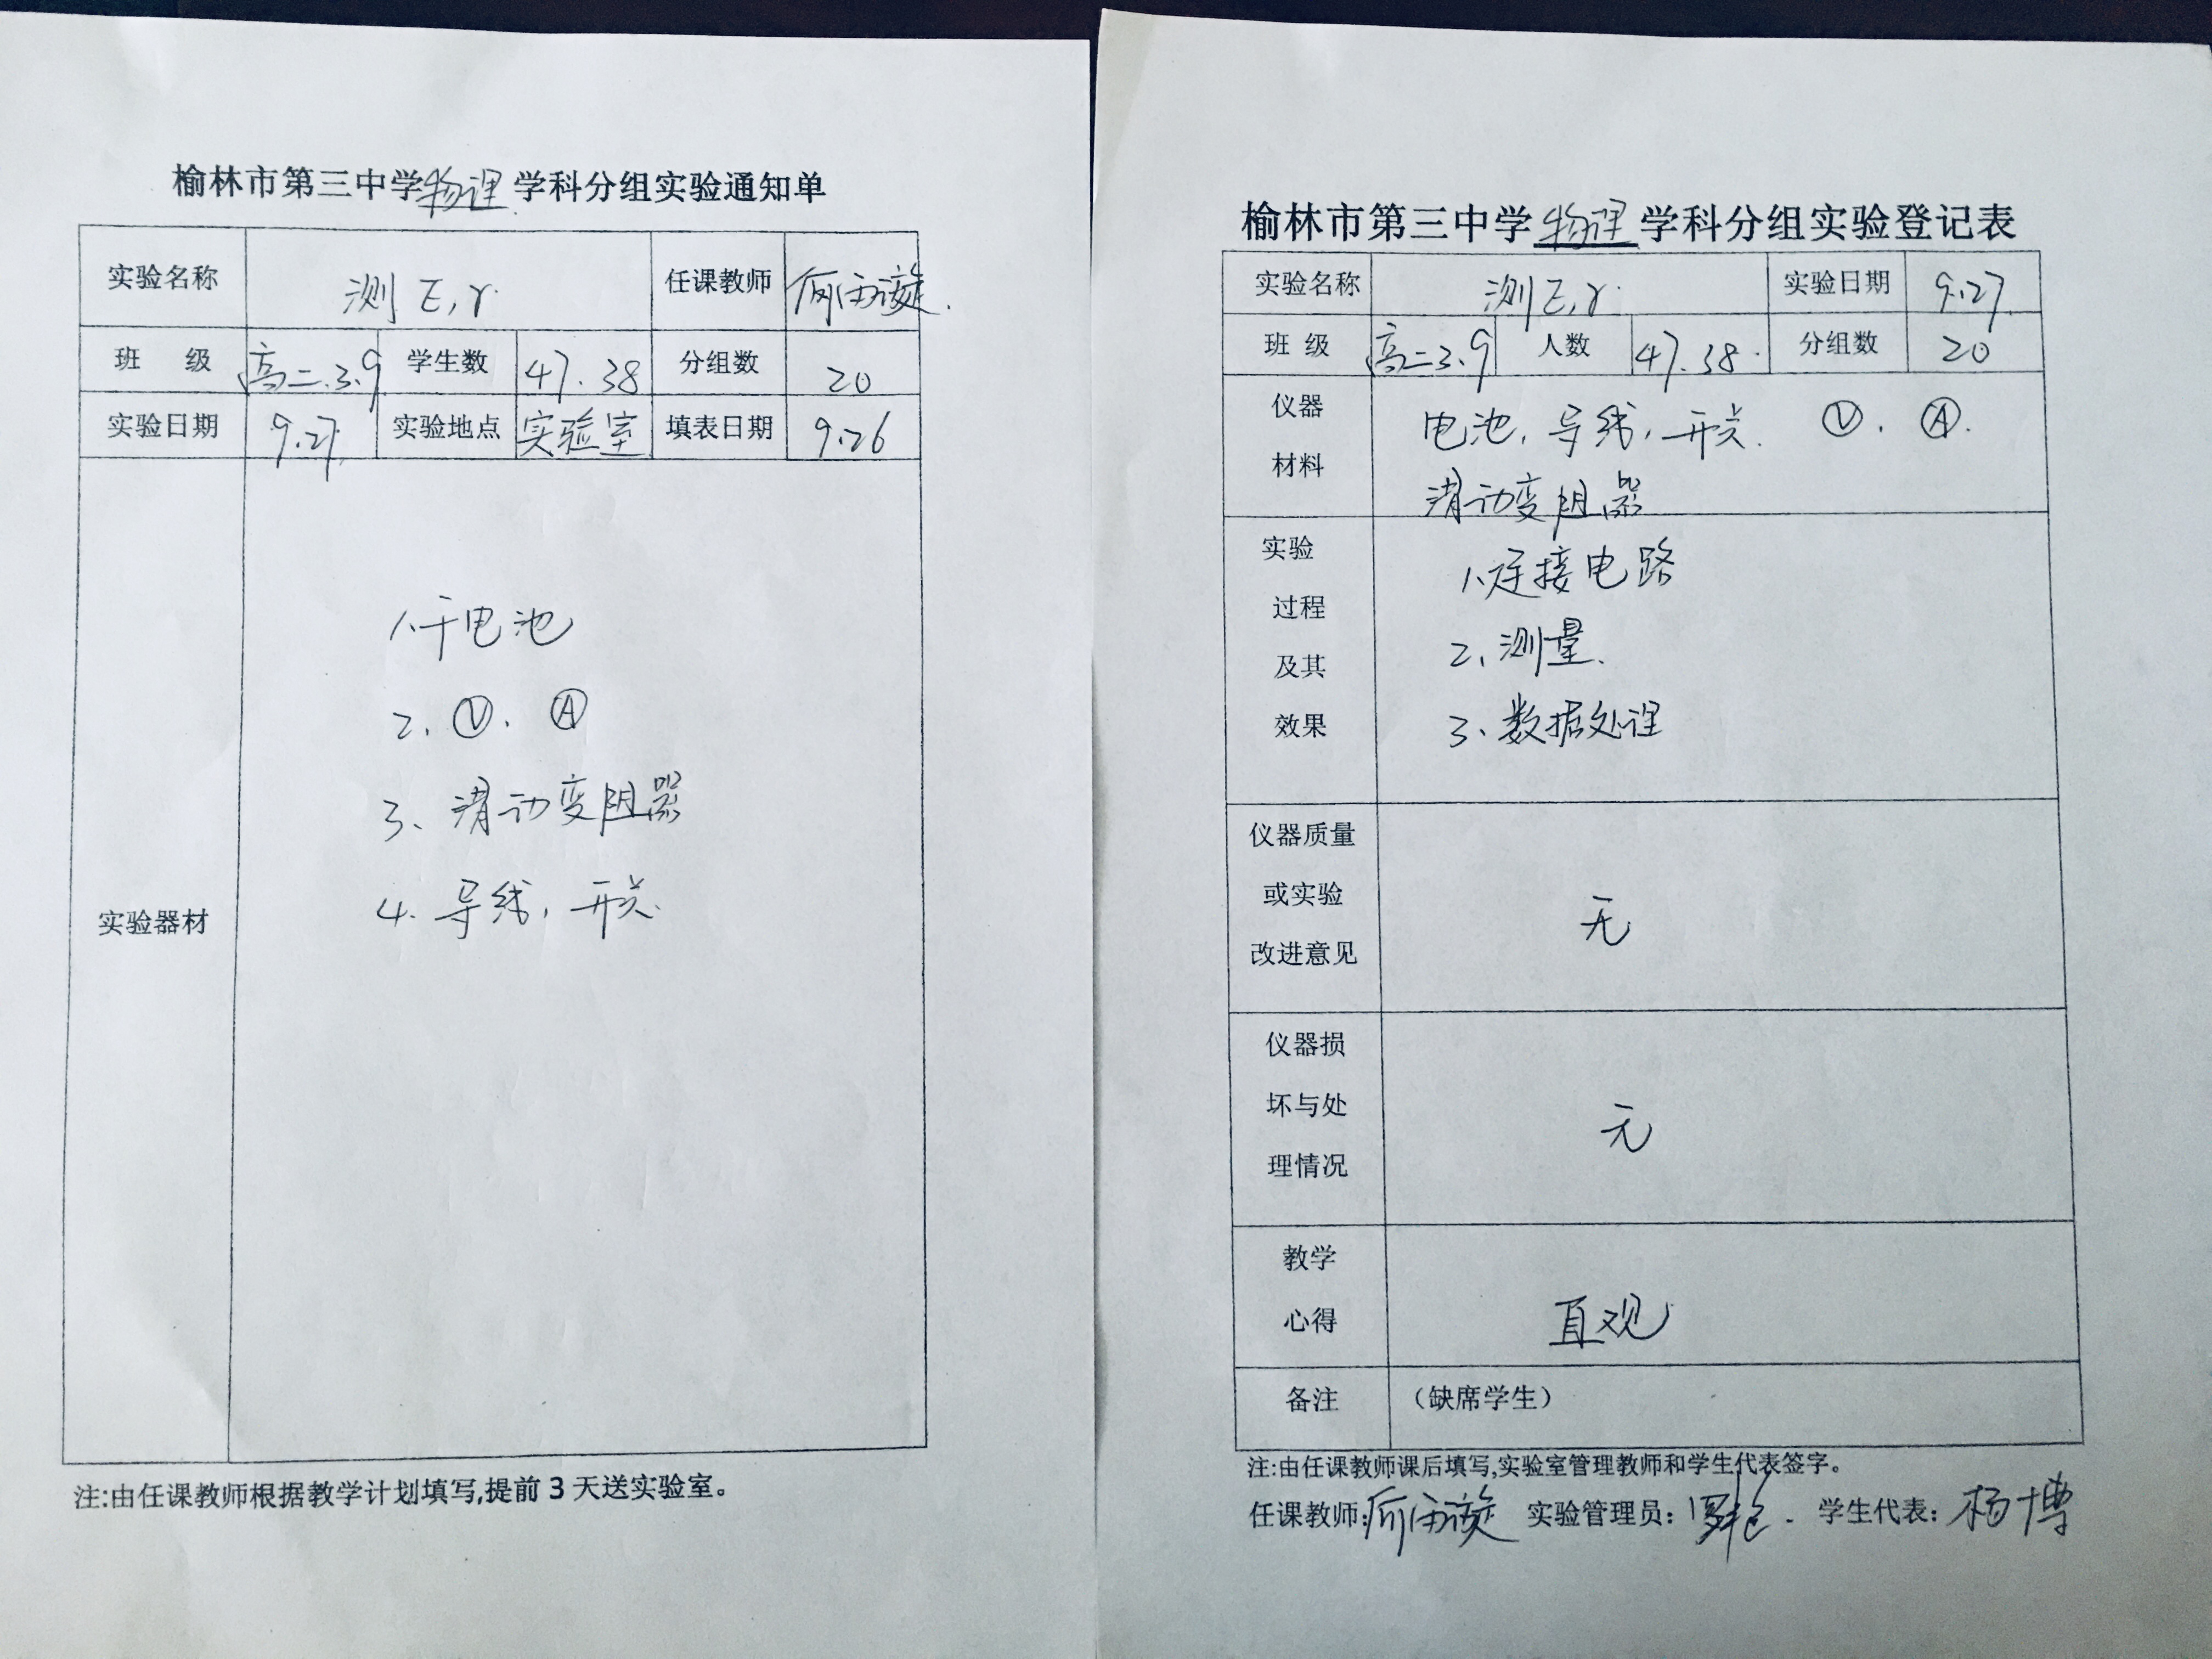 榆林市第三中学物理学科分组实验通知单
实验名称 测 E,r. 任课教师
班 级 高二.3.9 学生数 47.38 分组数 20
实验日期 9.27. 实验地点 实验室 填表日期 9.26
实验器材
1.干电池
2、Ⓥ. Ⓐ
3、滑动变阻器
4. 导线，开关.
注:由任课教师根据教学计划填写,提前 3 天送实验室。
榆林市第三中学物理学科分组实验登记表
实验名称 测E,r. 实验日期 9.27.
班 级 高二3.9 人数 47.38. 分组数 20
仪器
材料
电池，导线，开关. Ⓥ. Ⓐ.
滑动变阻器
实验
过程
及其
效果
1.连接电路
2、测量.
3、数据处理
仪器质量
或实验
改进意见
无
仪器损
坏与处
理情况
无
教学
心得
直观
备注 （缺席学生）
注:由任课教师课后填写,实验室管理教师和学生代表签字。
任课教师: 实验管理员: 学生代表: 杨博